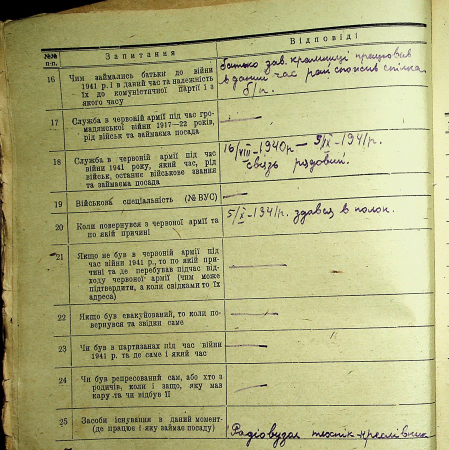 №№ п-п.
Запитання
Відповіді
16
Чим займались батьки до війни
1941 р. і в даний час та належність
їх до комуністичної партії і з
якого часу
батько зав. крамниці працював
в даний час рай спожив спілка
б/п.
17
Служба в червоній армії під час гро-
мадянської війни 1917—22 років,
рід військ та займаєма посада
18
Служба в червоній армії під час
війни 1941 року, який час, рід
військ, останнє військове звання
та займаєма посада
16/VIII-1940р — 5/X-1941р.
связь рядовий.
19
Військова спеціальність (№ ВУС)
20
Коли повернувся з червоної армії та
по якій причині
5/X-1941р. здався в полон.
21
Якщо не був в червоній армії під
час війни 1941 р., то по якій при-
чині та де перебував підчас від-
ходу червоної армії (чим може
підтвердити, а коли свідками то їх
адреса)
22
Якщо був евакуйований, то коли по-
вернувся та звідки саме
23
Чи був в партизанах під час війни
1941 р. та де саме і який час
24
Чи був репресований сам, або хто з
родичів, коли і защо, яку мав
кару та чи відбув її
25
Засоби існування в даний момент-
(де працює і яку займає посаду)
Радіовузол технік-креслівник